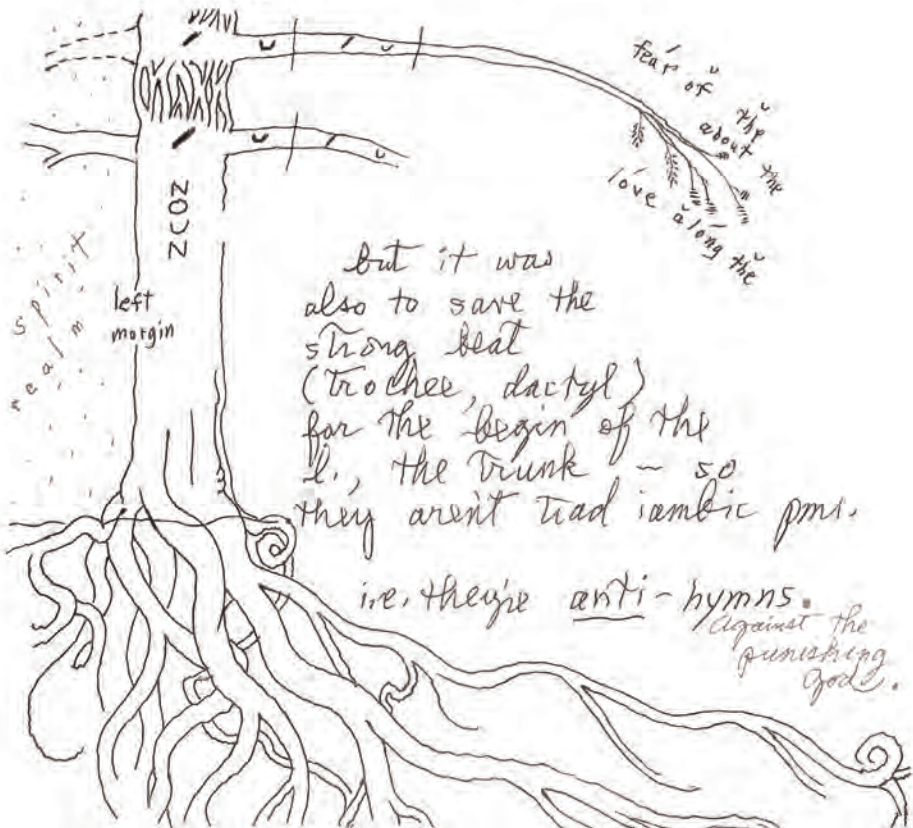 fear of the
about the
love along the
NOUN
spirit
realm
left
margin
but it was
also to save the
strong beat
(trochee, dactyl)
for the begin of the
l., the trunk – so
they aren't trad iambic pms.
i.e. they're anti-hymns.
Against the
punishing